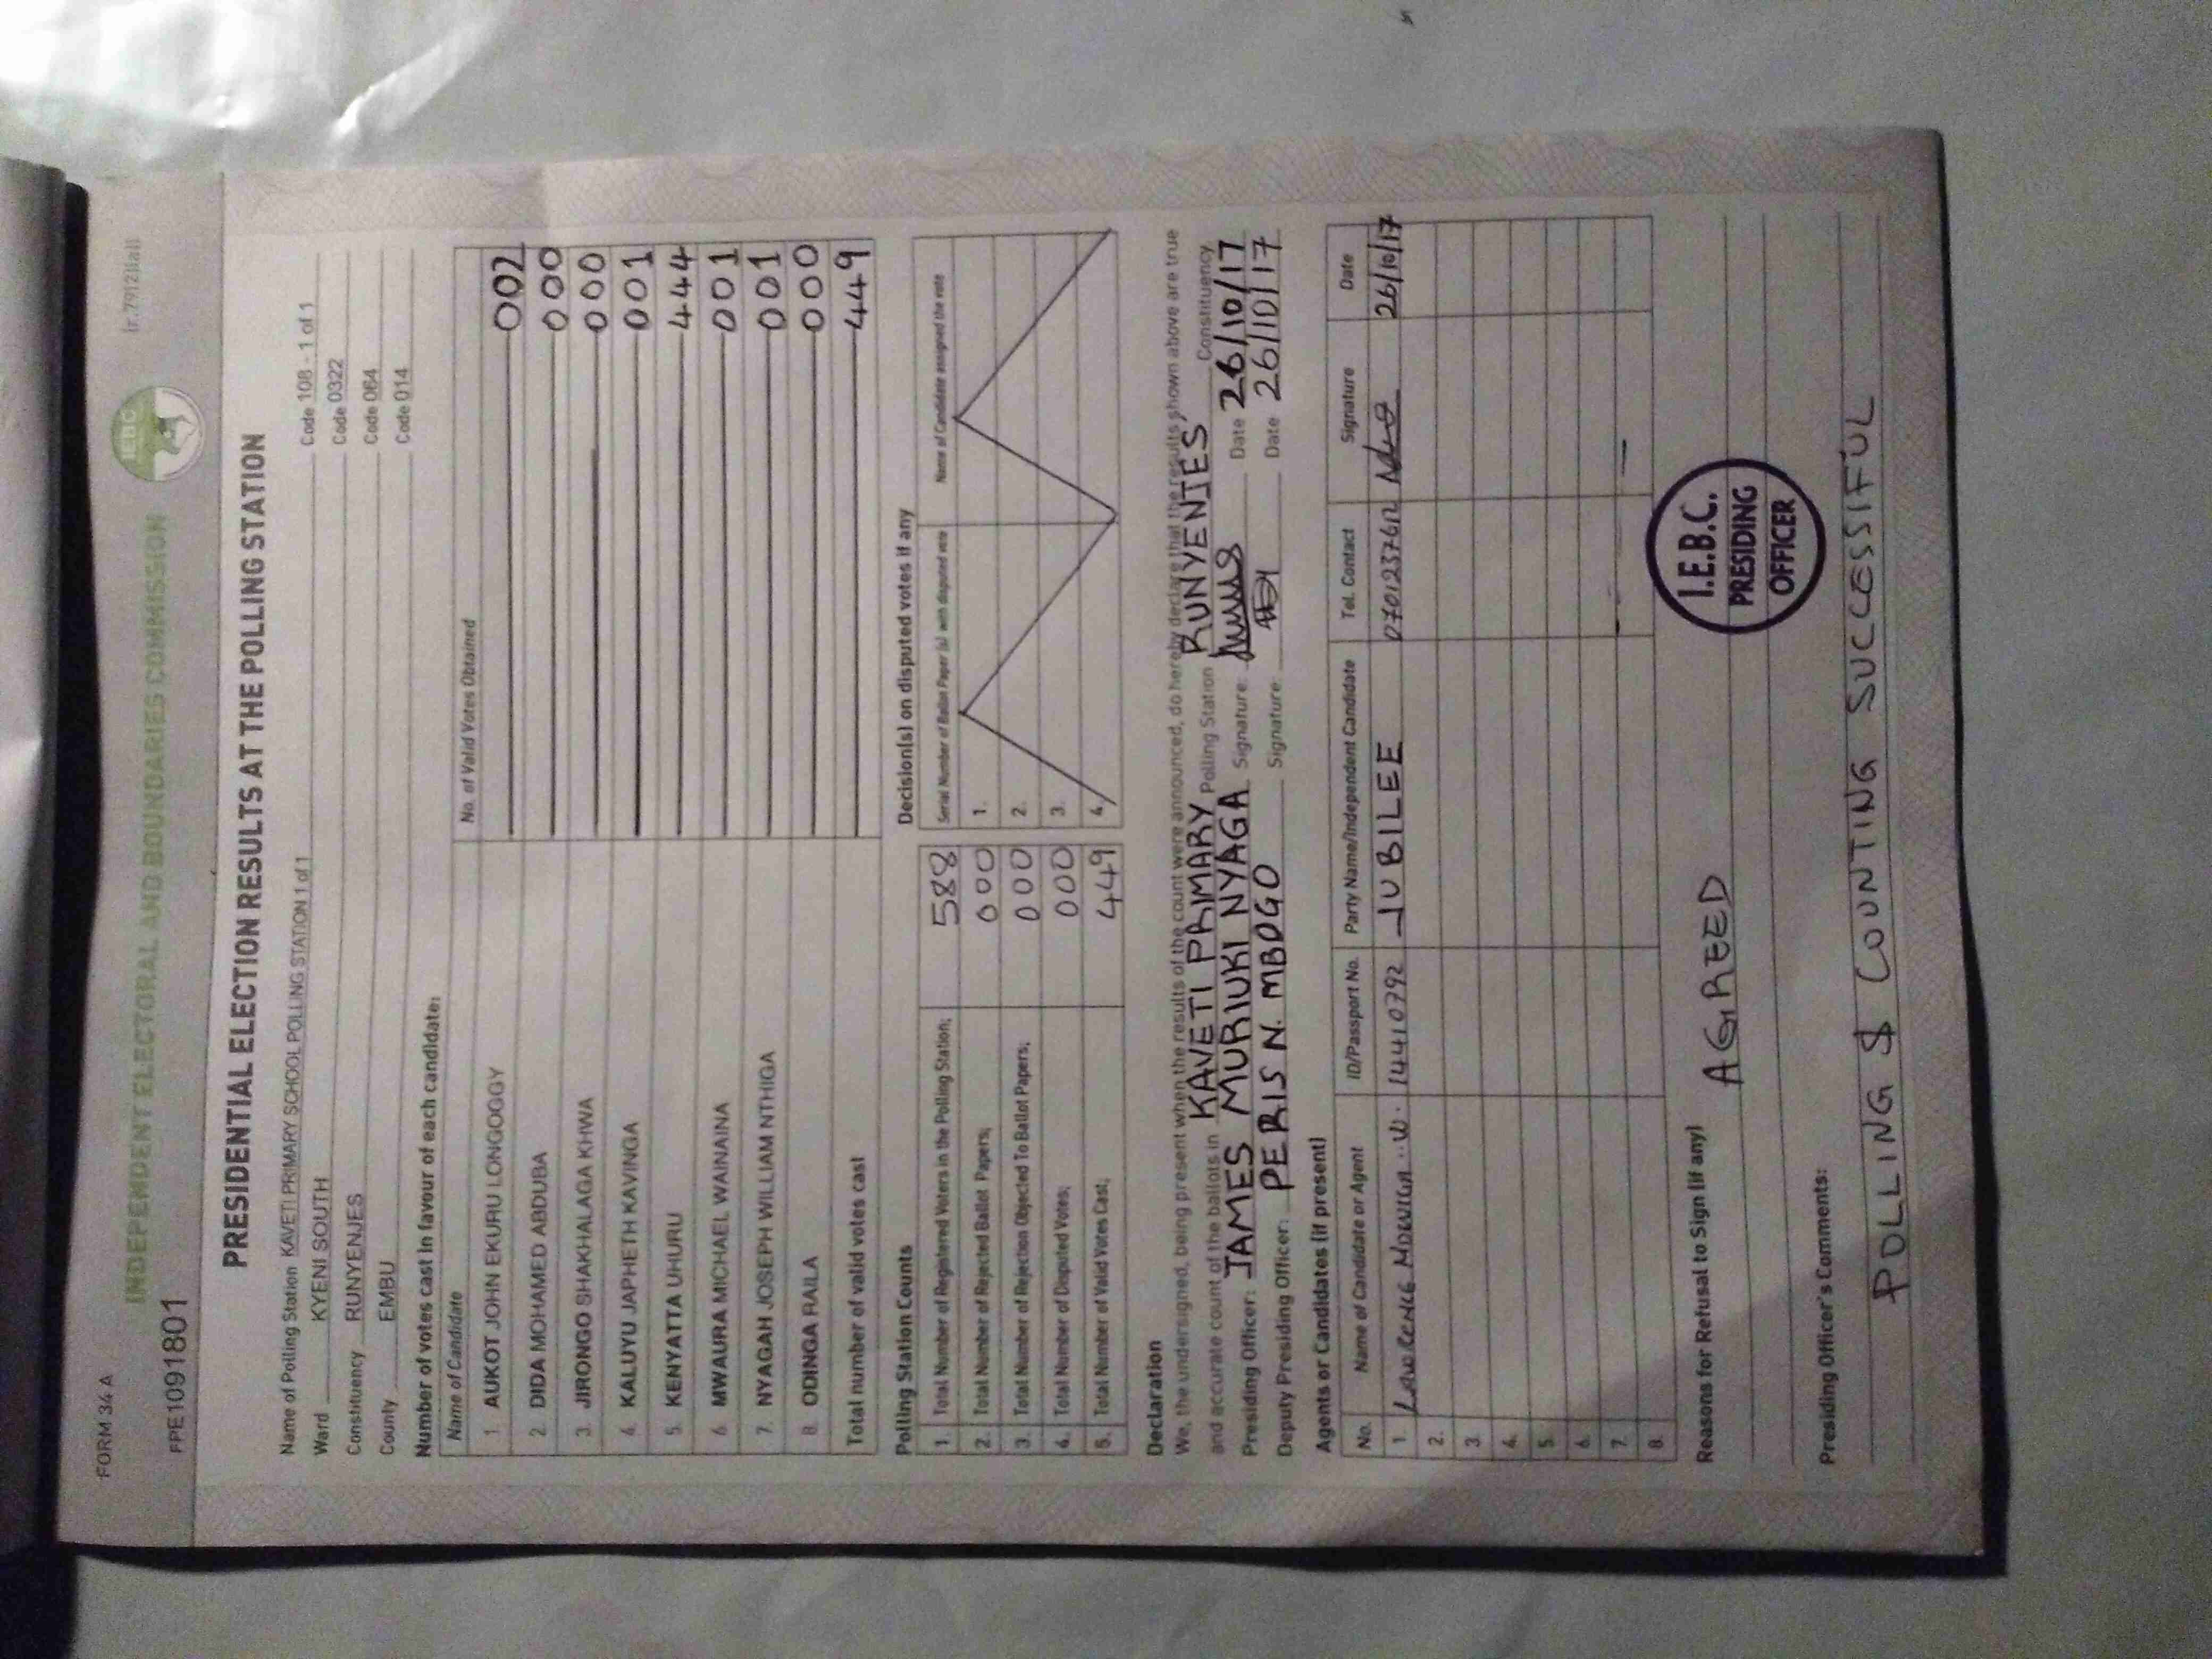 FORM 34 A
INDEPENDENT ELECTORAL AND BOUNDARIES COMMISSION
IEBC
FPE1091801
PRESIDENTIAL ELECTION RESULTS AT THE POLLING STATION
Name of Polling Station KAVETI PRIMARY SCHOOL POLLING STATION 1 of 1 Code 108 - 1 of 1
Ward KYENI SOUTH Code 0322
Constituency RUNYENJES Code 064
County EMBU Code 014
Number of votes cast in favour of each candidate:
Name of Candidate No. of Valid Votes Obtained
1. AUKOT JOHN EKURU LONGOGGY 002
2. DIDA MOHAMED ABDUBA 000
3. JIRONGO SHAKHALAGA KHWA 000
4. KALUYU JAPHETH KAVINGA 001
5. KENYATTA UHURU 444
6. MWAURA MICHAEL WAINAINA 001
7. NYAGAH JOSEPH WILLIAM NTHIGA 001
8. ODINGA RAILA 000
Total number of valid votes cast 449
Polling Station Counts
1. Total Number of Registered Voters in the Polling Station; 588
2. Total Number of Rejected Ballot Papers; 000
3. Total Number of Rejection Objected To Ballot Papers; 000
4. Total Number of Disputed Votes; 000
5. Total Number of Valid Votes Cast; 449
Decision(s) on disputed votes if any
Serial Number of Ballot Paper (s) with disputed vote Name of Candidate assigned the vote
1.
2.
3.
4.
Declaration
We, the undersigned, being present when the results of the count were announced, do hereby declare that the results shown above are true
and accurate count of the ballots in KAVETI PRIMARY Polling Station RUNYENJES Constituency
Presiding Officer: JAMES MURIUKI NYAGA Signature: Date 26/10/17
Deputy Presiding Officer: PERIS N. MBOGO Signature: Date 26/10/17
Agents or Candidates (if present)
No. Name of Candidate or Agent ID/Passport No. Party Name/Independent Candidate Tel. Contact Signature Date
1. LAWRENCE W. 14410792 JUBILEE 26/10/17
2.
3.
4.
5.
6.
7.
8.
Reasons for Refusal to Sign (if any)
AGREED
I.E.B.C.
PRESIDING
OFFICER
Presiding Officer's Comments:
POLLING $ COUNTING SUCCESSIFUL